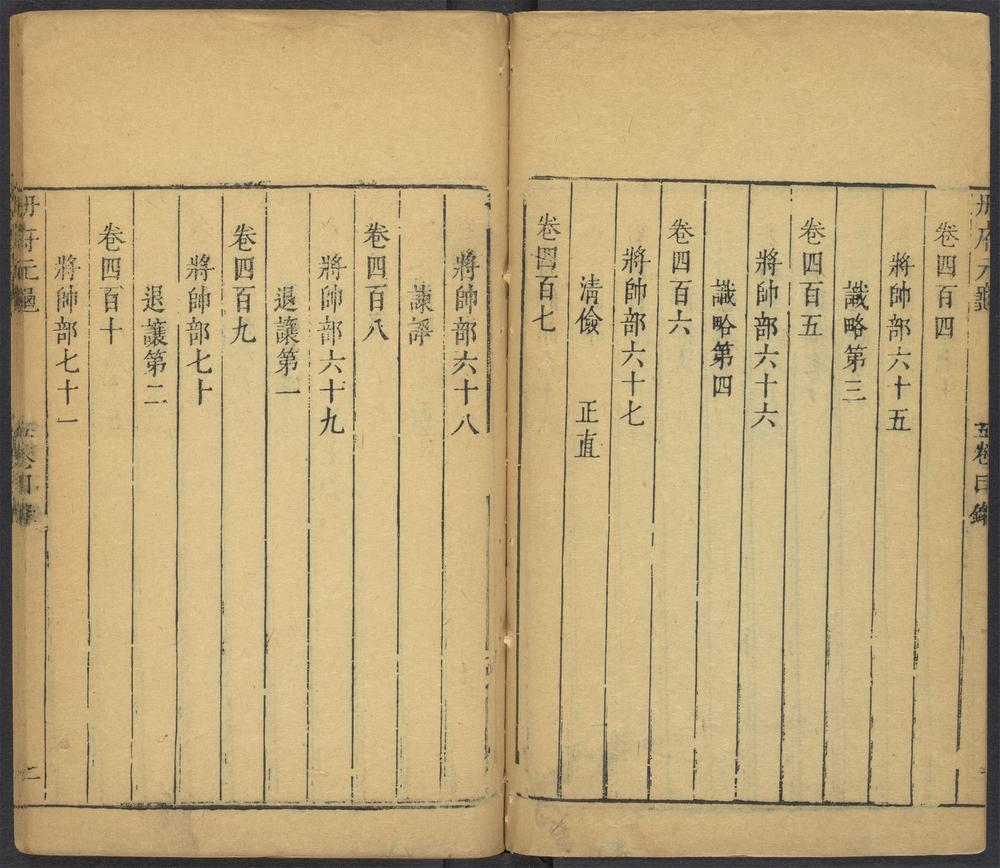 册府元龜
五卷目錄
卷四百四
將帥部六十五
識略第三
卷四百五
將帥部六十六
識略第四
卷四百六
將帥部六十七
清儉 正直
卷四百七
將帥部六十八
諫諍
卷四百八
將帥部六十九
退讓第一
卷四百九
將帥部七十
退讓第二
卷四百十
將帥部七十一
册府元龜
二